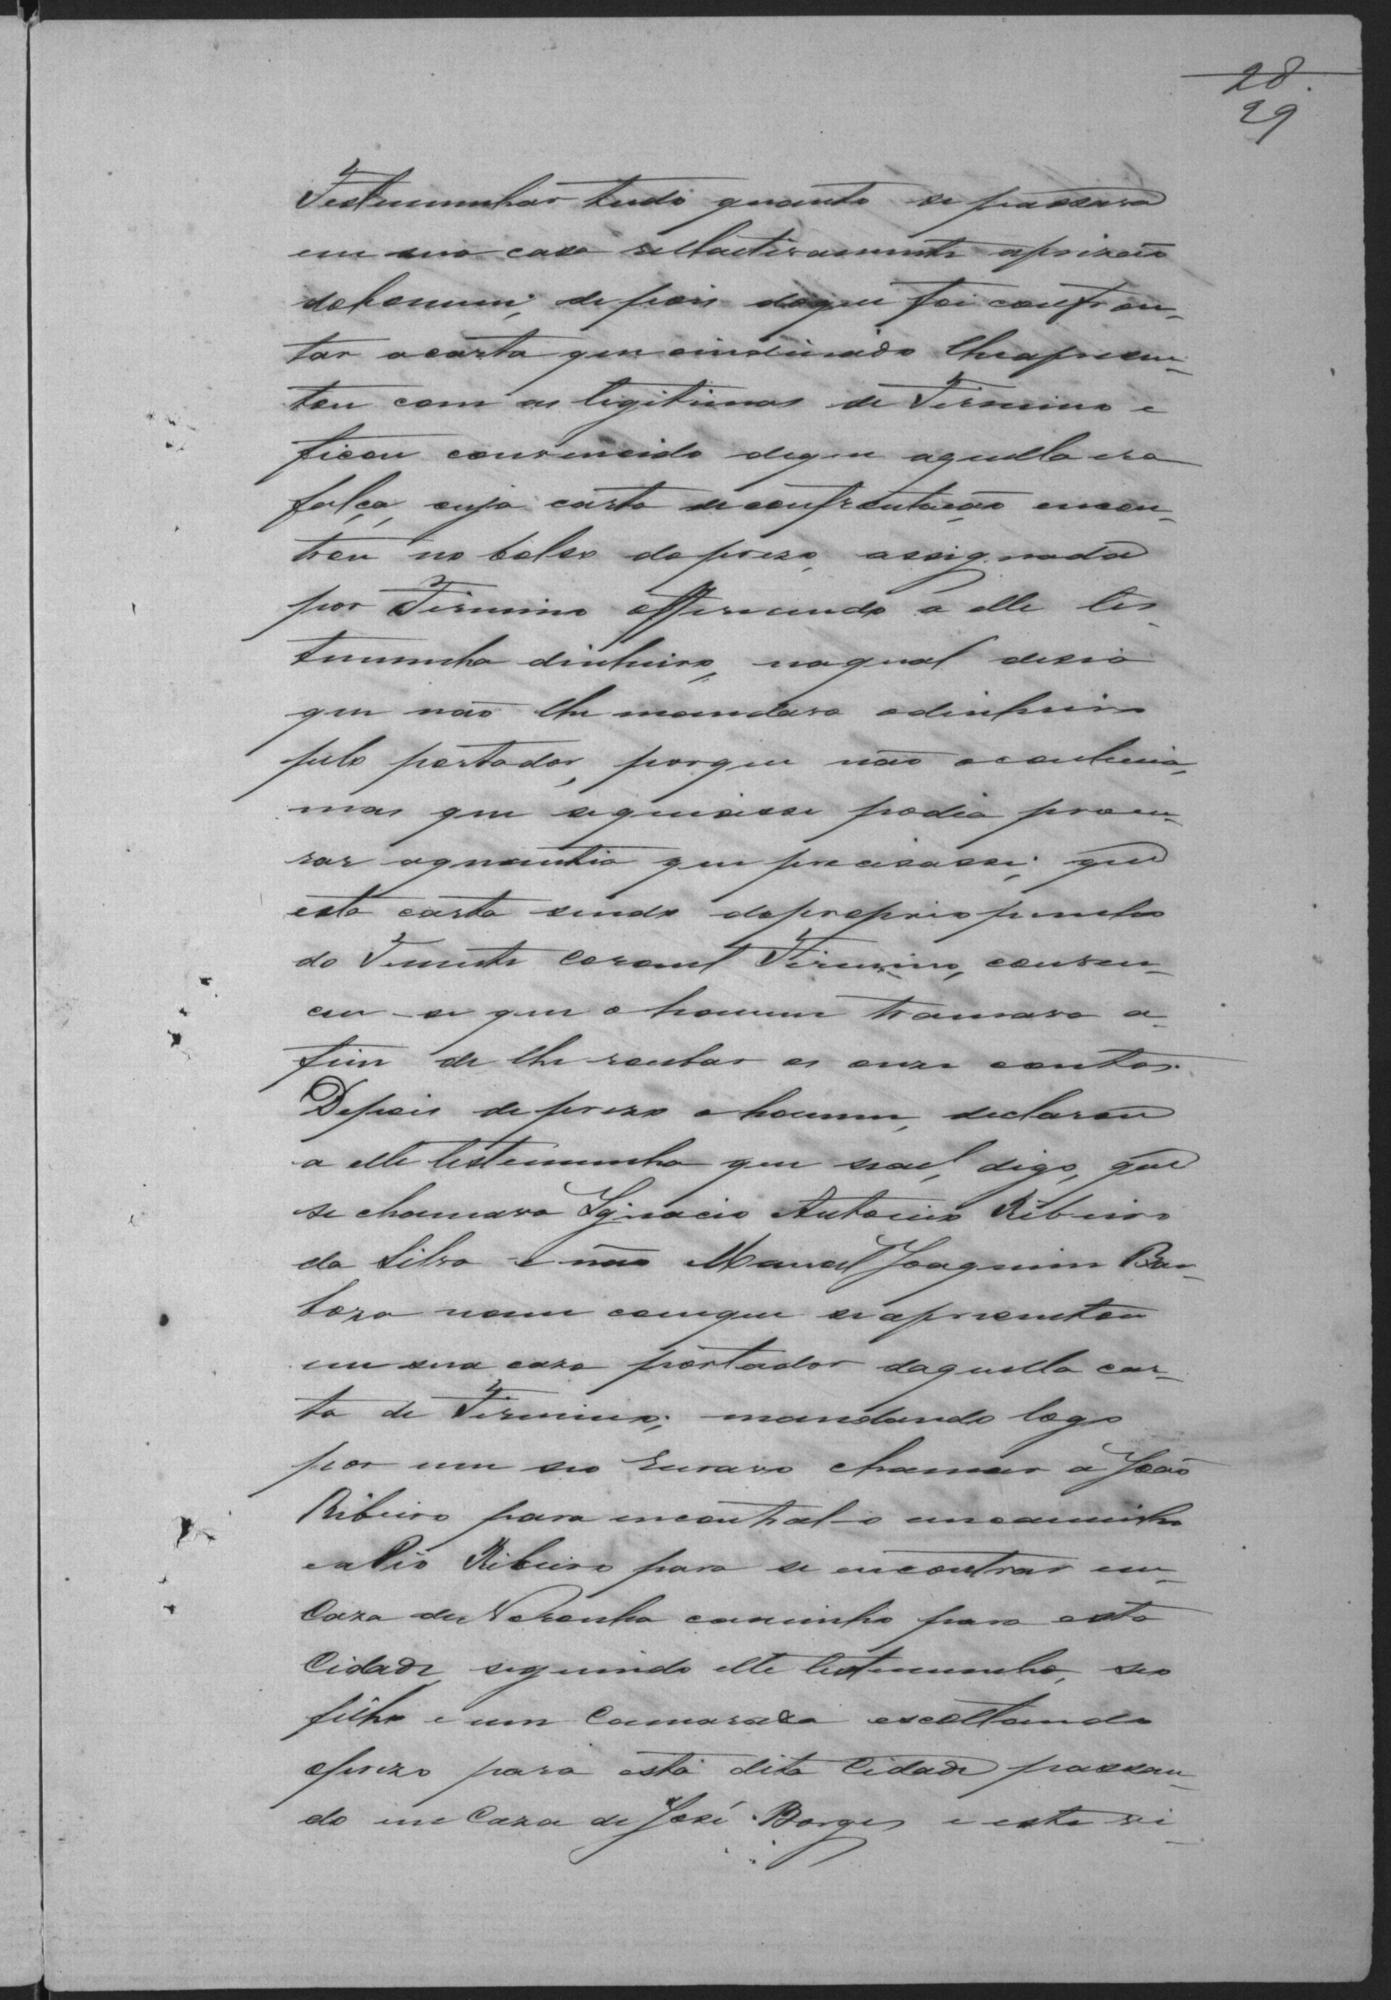 28.
29
Testemunhar tudo quanto se passara
em sua casa rellactivamente aprizão
dohomem; depois doque foi confron-
tar acarta que oindiciado lheapresen-
tou com as legitimas de Firmino e
ficou convencido deque aquella era
falça, cuja carta deconfrontação encon-
trou no bolso dopreso, assignada
por Firmino offerecendo a elle tes-
temunha dinheiro, naqual desia
que não lhe mandava odinheiro
pelo portador, porque não oconhecia,
mas que sequizesse podia procu-
rar aquantia que precisasse; que
esta carta sendo dopropriopunho
do Tenente Coronel Firmino, conven-
ceu-se que o homem tramava a-
fim de lhe roubar os onze contos.
Depois depreso o homem, declarou
a elle testemunha que seael, digo, que
se chamava Ignacio Antonio Ribeiro
da Silva e não Manoel Joaquim Bar-
boza nome comque seapresentou
em sua caza portador daquella car-
ta de Firmino; mandando logo
por um seo Escravo chamar a João
Ribeiro para encontral-o emcaminho
e a Pio Ribeiro para se encontrar em
Caza de Noronha caminho para esta
Cidade seguindo elle testemunha, seo
filho e um Camarada escoltando
oprezo para esta dita Cidade passan-
do em Caza de José Borges e este vi-